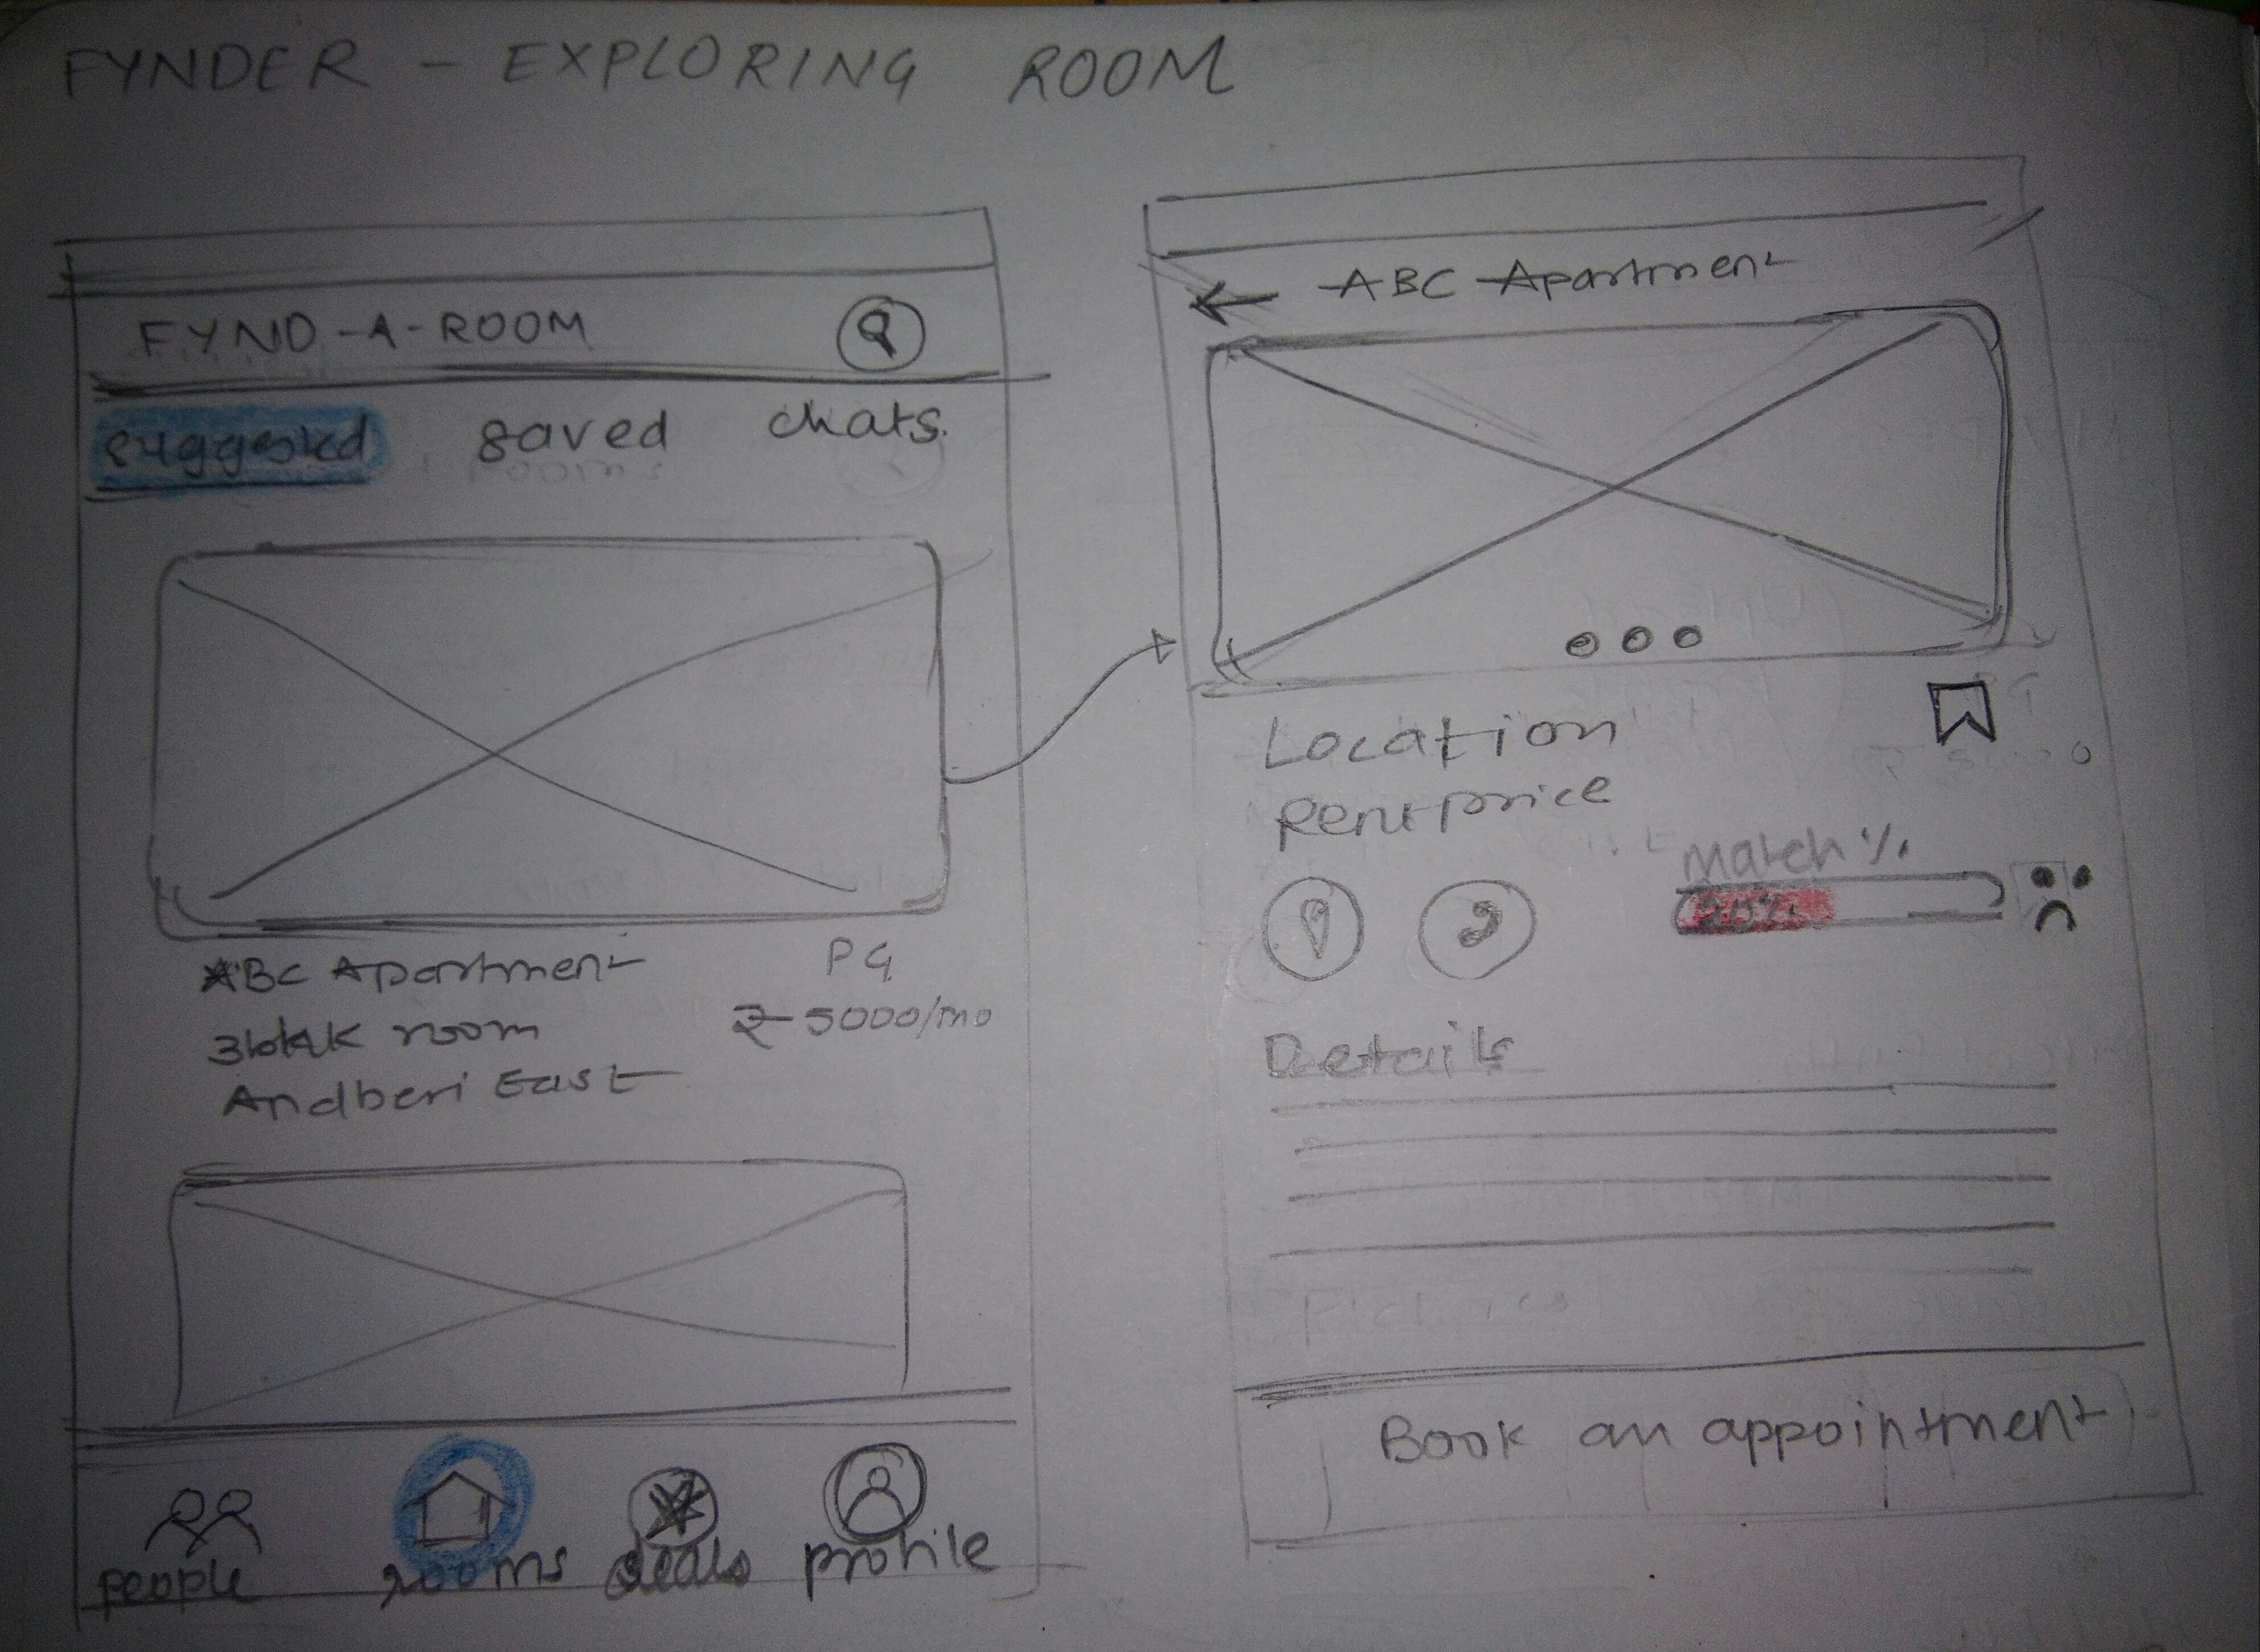 FYNDER - EXPLORING ROOM
FYND-A-ROOM
suggested saved chats.
ABC Apartment PG
3bhk room ₹5000/mo
Andberi East
people rooms deals profile
ABC Apartment
Location
Rent price
Match %
Details
Book an appointment